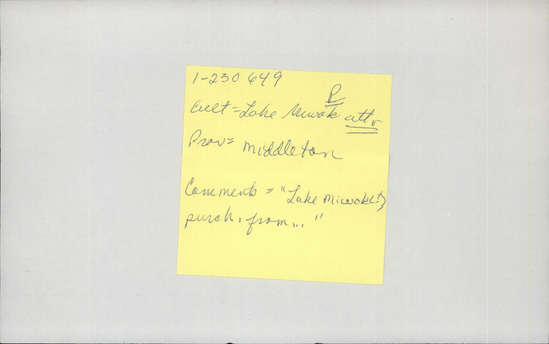 1-230649
P
Cult = Lake Miwok attr
Prov = Middletown
Comments = "Lake Miwok(?)
purch. from..."